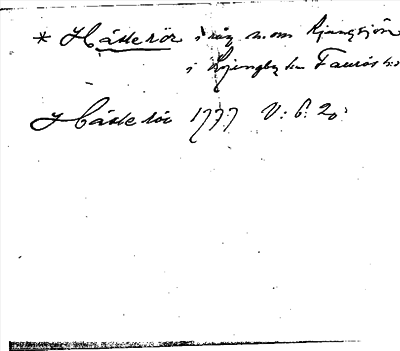 * Håsterör i råg n. om Kjungsjön
i Ljungby sn Faurås hd
Håsterör 1777 V: 6: 20